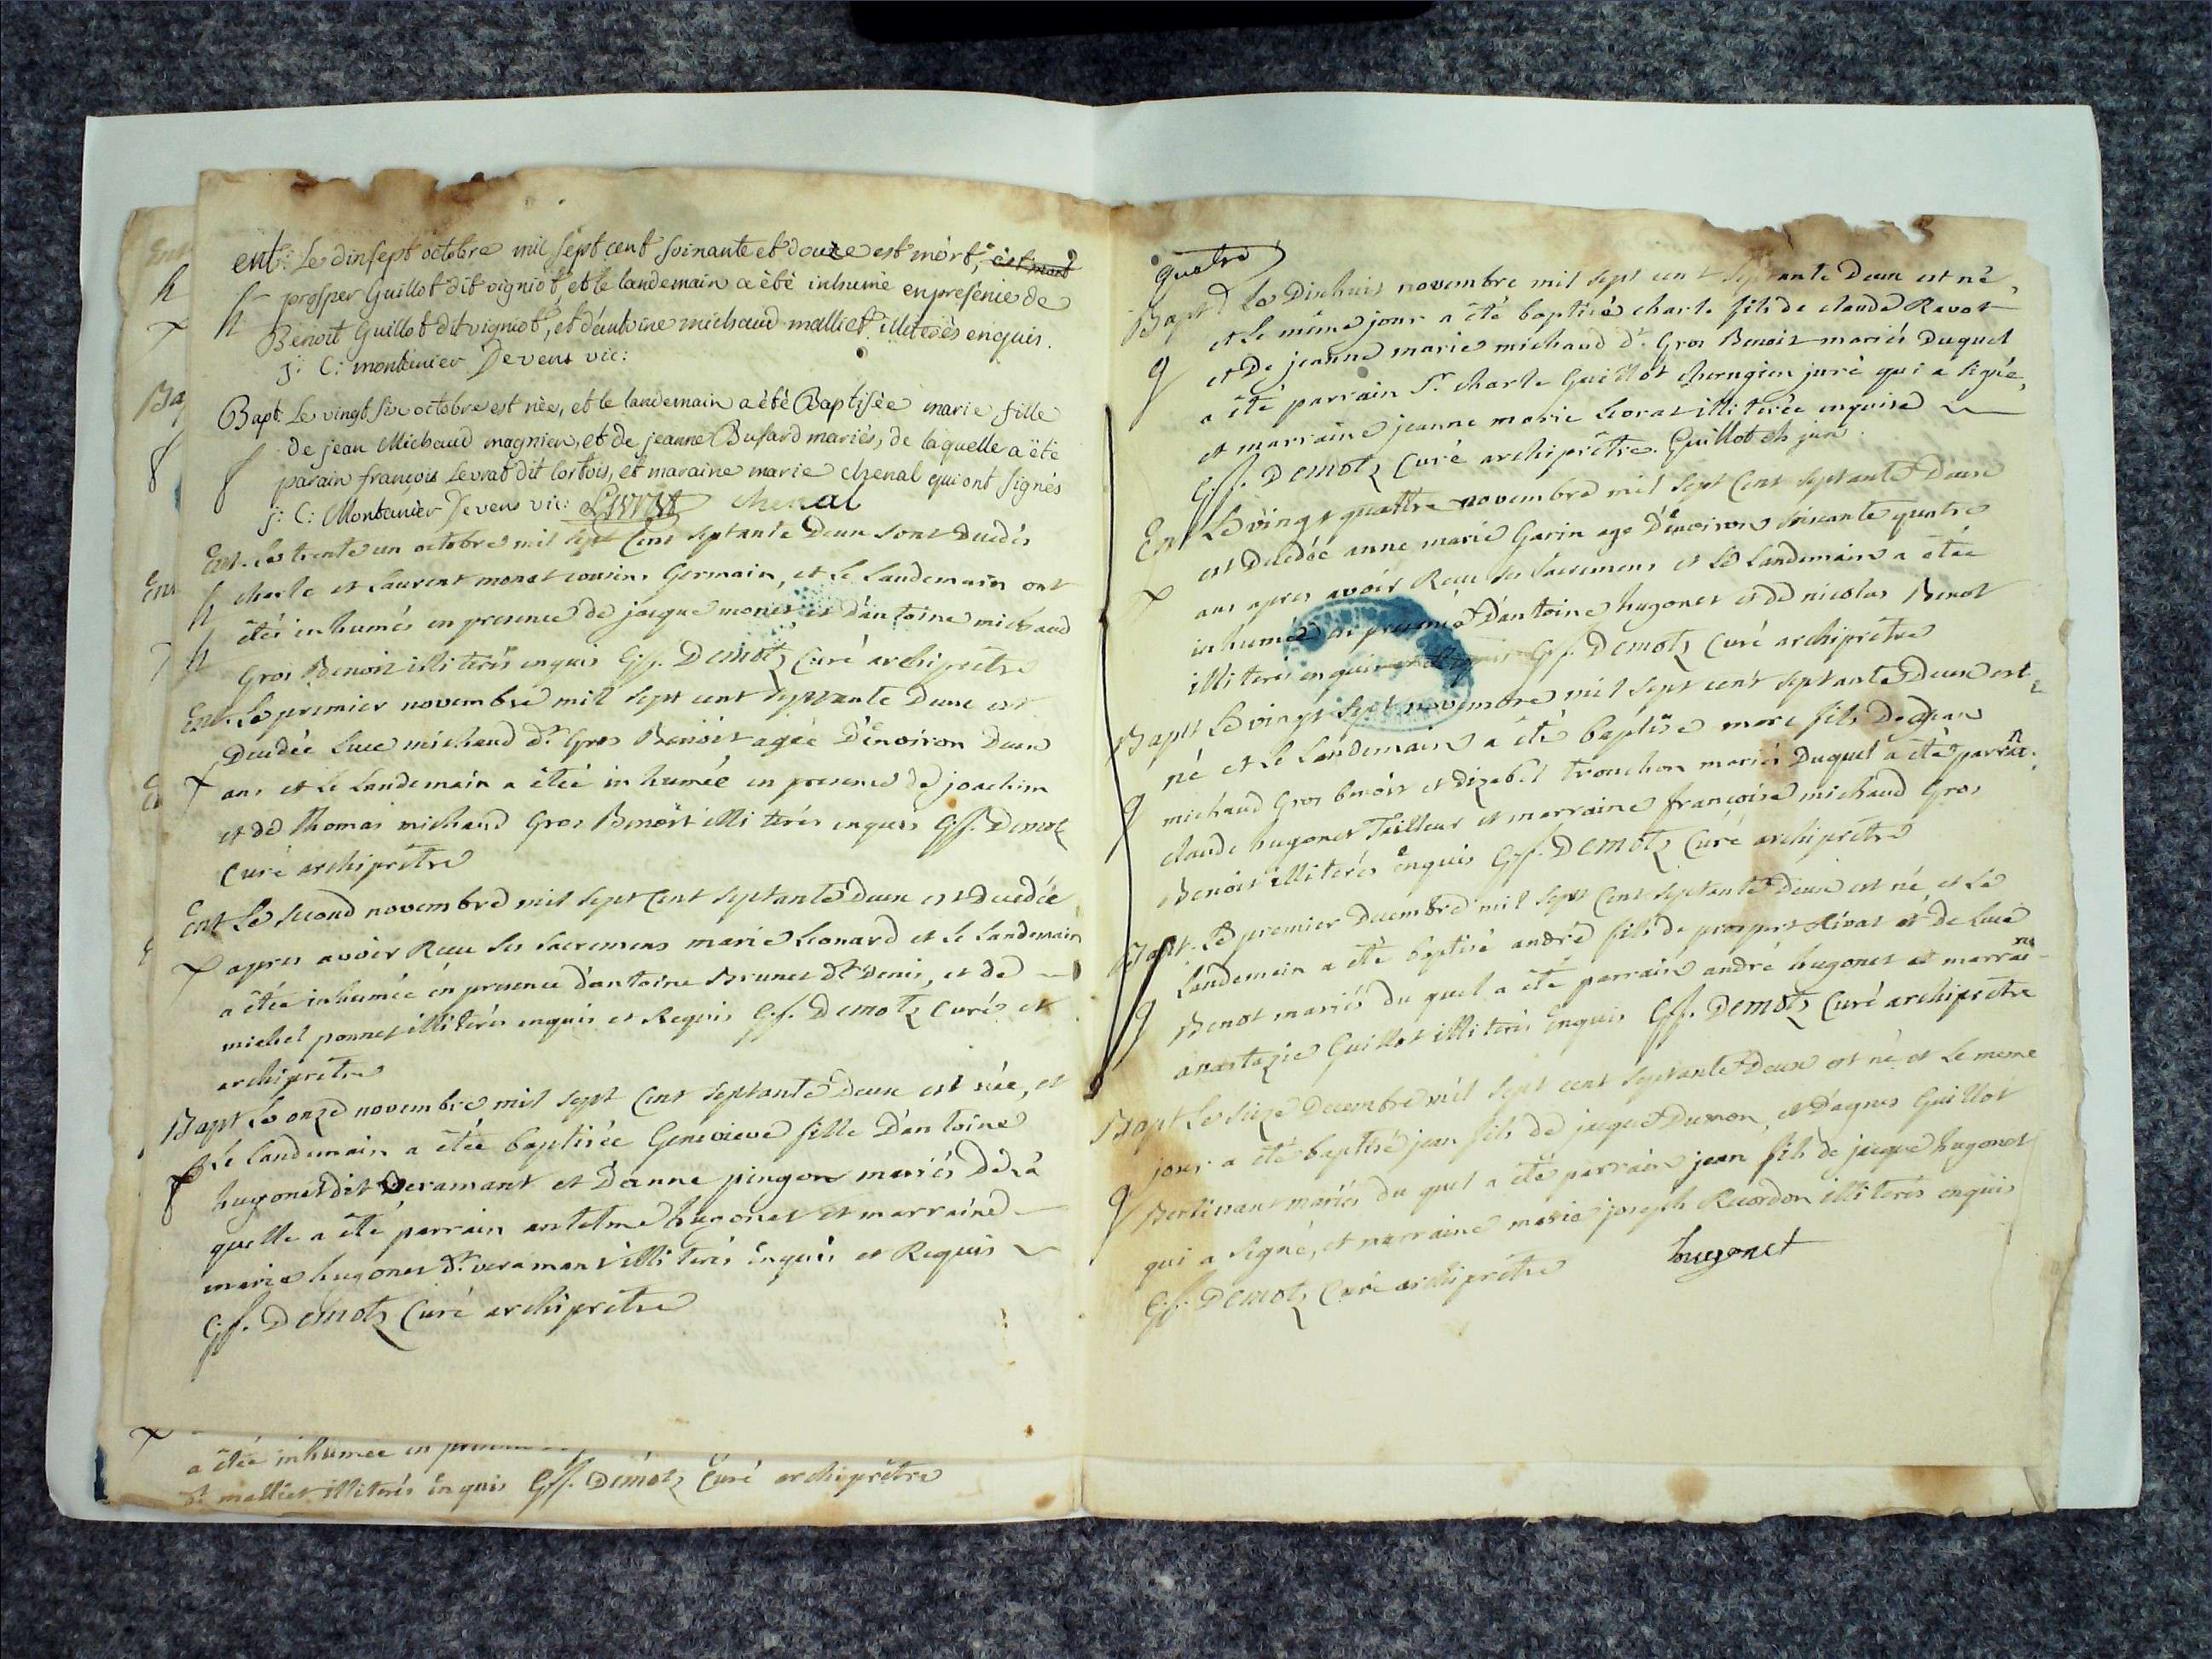 ent: Le dinsept octobre mil sept cent soinante et douze est mort, est mort
prosper Guillot dit vigniot, et le landemain a èté inhumé en presence de
Benoit Guillot dit vigniot, et d'antoine michaud malliet illiterès enquis.
j: C: montanier Devens vic:
Bapt. Le vingt six octobre est nèe, et le landemain a èté Baptisèe marie, fille
de jean Michaud magnien, et de jeanne Busard mariès, de laquelle a èté
parain françois Levrat dit Cortois, et maraine marie chenal qui ont signès
j: C: Montanier Devens vic: Levrat chenal
Ent. Le trente un octobre mil sept Cent septante Deux sont decedés
charle et Laurent monet cousins Germain, et le landemain ont
étés inhumés en presence de jacque monet et d'antoine michaud
Gros Benoit illiterés enquis Gf. Demotz Curé archiprêtre
Ent. Le premier novembre mil sept cent septante Deux est
Decedée Luce michaud dt. Gros Benoit agée D'environ Deux
ans et le landemain a étée inhumée en presence de joachim
et de thomas michaud Gros Benoit illiterés enquis Gf. Demotz
Curé archiprêtre
Ent Le second novembre mil sept Cent septante Deux est Decedée
apres avoir Recu ses sacremens marie Leonard et le landemain
a étée inhumée en presence d'antoine Brunet dt Denis, et de
michel ponnet illiterés enquis et Requis Gf. Demotz Curé et
archiprêtre
Bapt Le onze novembre mil sept Cent septante Deux est née, et
Le landemain a étée baptisée Genevieve fille D'antoine
hugonet dit veramant et D'anne pingon mariés De la
quelle a été parrain antelme hugonet et marraine
marie hugonet dt. veramant illiterés enquis et Requis
Gf. Demotz Curé archiprêtre
a étée inhumée en
dt malliet illiterés enquis Gf. Demotz Curé archiprêtre
quatre
Bapt Le Dixhuit novembre mil sept cent septante Deux est né,
et le même jour a été baptisé charle fils de claude Ravot
et De jeanne marie michaud dt. Gros Benoit mariés Duquel
a été parrain Sr. charle Guillot chirurgien juré qui a signé,
et marraine jeanne marie Levrat illiterée enquise
Gf. Demotz Curé archiprêtre. Guillot ch juré
Ent Le vingt quattre novembre mil sept Cent septante Deux
est Decedée anne marie Garin age D'environ soixante quatre
ans apres avoir Recu ses sacremens et Le Landemain a étée
inhumée en presence D'antoine hugonet et de nicolas Benot
illiterés enquis Gf. Demotz Curé archiprêtre
Bapt Le vingt sept novembre mil sept cent septante Deux est
né et Le Landemain a été baptisé marc fils De jean
michaud Gros benoit et dizabel tronchon mariés Duquel a été parrain
claude hugonet Tailleur et marraine françoise michaud Gros
Benoit illiterés enquis Gf. Demotz Curé archiprêtre
Bapt. Le premier Decembre mil sept Cent septante Deux est né et Le
Landemain a été baptisé andré fils de prosper Rivat et de Luce
Benot mariés du quel a été parrain andré hugonet et marraine
anastazie Guillot illiterés enquis Gf. Demotz Curé archiprêtre
Bapt Le seize Decembre mil sept cent septante Deux est né et Le meme
jour a été baptisé jean fils de jacque Dumon, et D'agnes Guillot
Bertissant mariés du quel a été parrain jean fils de jacque hugonet
qui a signé, et marraine marie joseph Reordon illiterés enquis
Gf. Demotz Curé archiprêtre hugonet